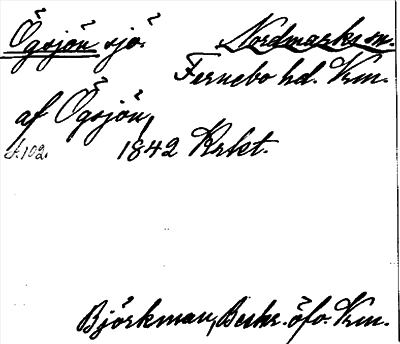 Ögsjön sjö. Nordmarks sn.
Fernebo hd. Vrm.
af Ögsjön,
s. 102. 1842 Krkt.
Björkman, Beskr. öfv. Vrm.